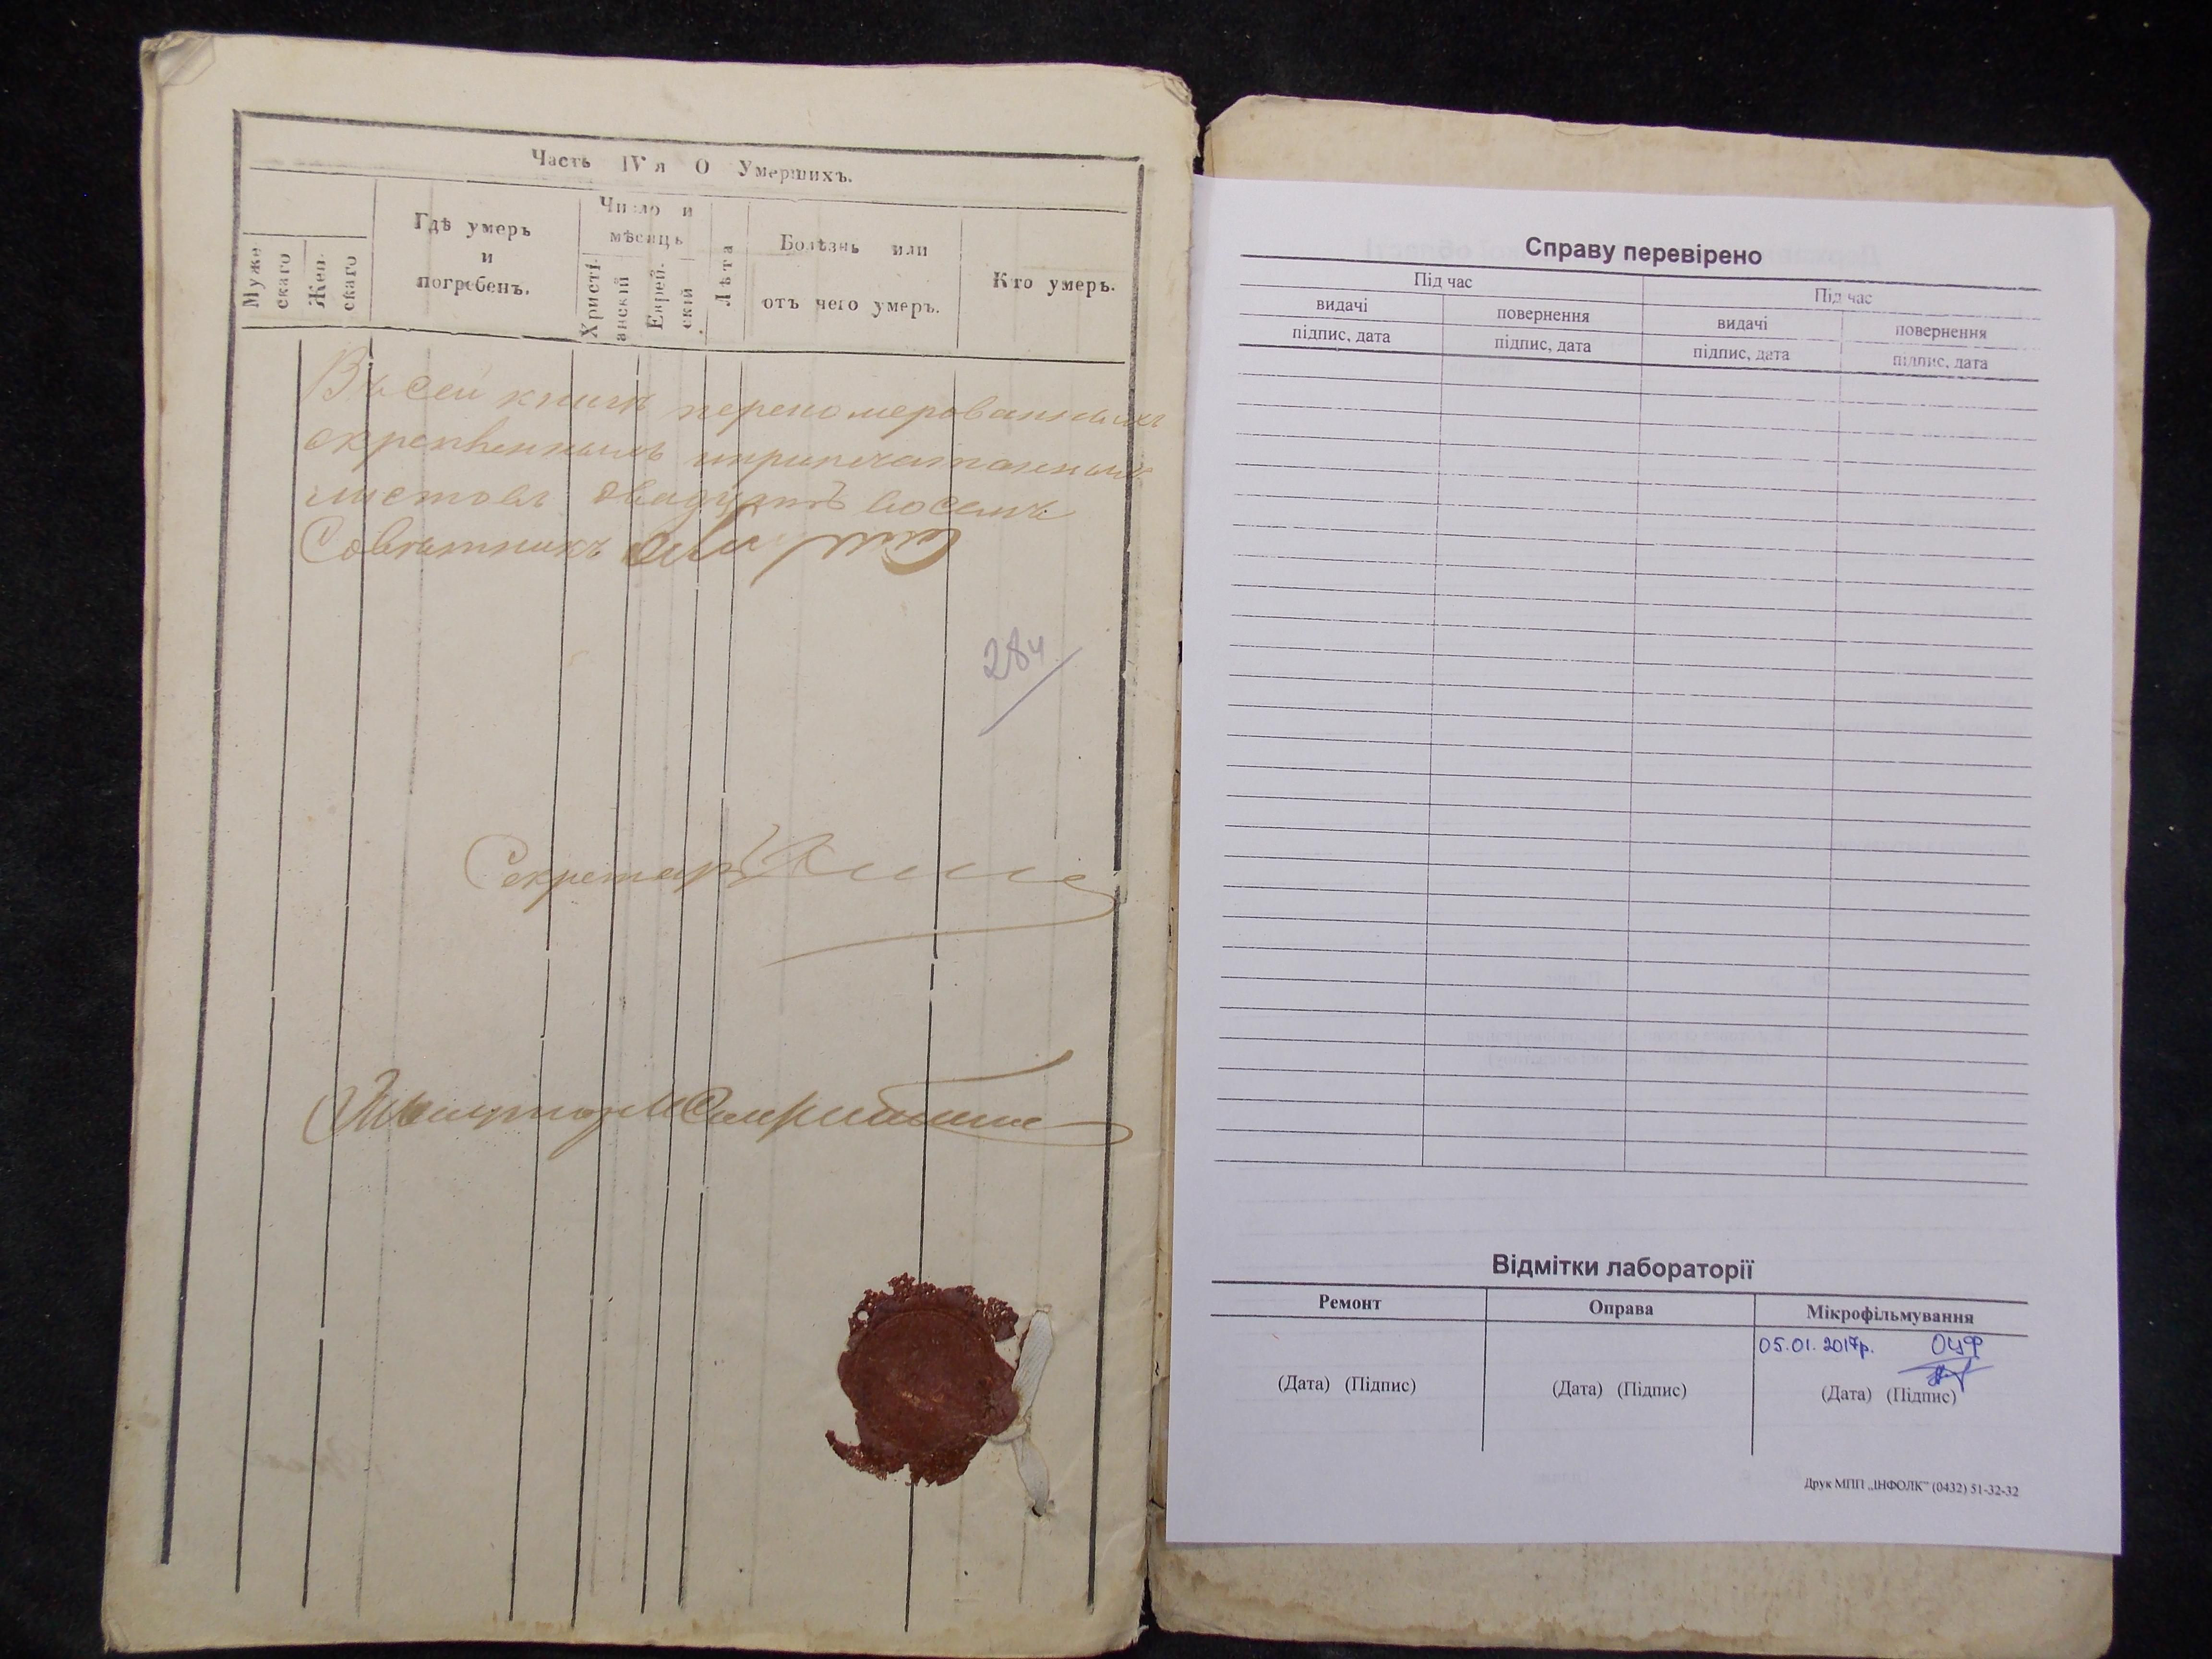 Часть IVя О Умершихъ.
Муже
скаго
Жен-
скаго
Гдѣ умеръ
и
погребенъ.
Число и
мѣсяцъ
Христі-
анскій
Еврей-
скій
Лѣта
Болѣзнь или
отъ чего умеръ.
Кто умеръ.
Въ сей книгѣ перенумерованныхъ
скрепленныхъ и припечатанныхъ
листовъ двадцать восемь
Совѣтникъ
284
Секретарь
Справу перевірено
Під час Під час
видачі повернення видачі повернення
підпис, дата підпис, дата підпис, дата підпис, дата
Відмітки лабораторії
Ремонт Оправа Мікрофільмування
05.01.2017р. ОЦФ
(Дата) (Підпис) (Дата) (Підпис) (Дата) (Підпис)
Друк МПП „ІНФОЛК” (0432) 51-32-32